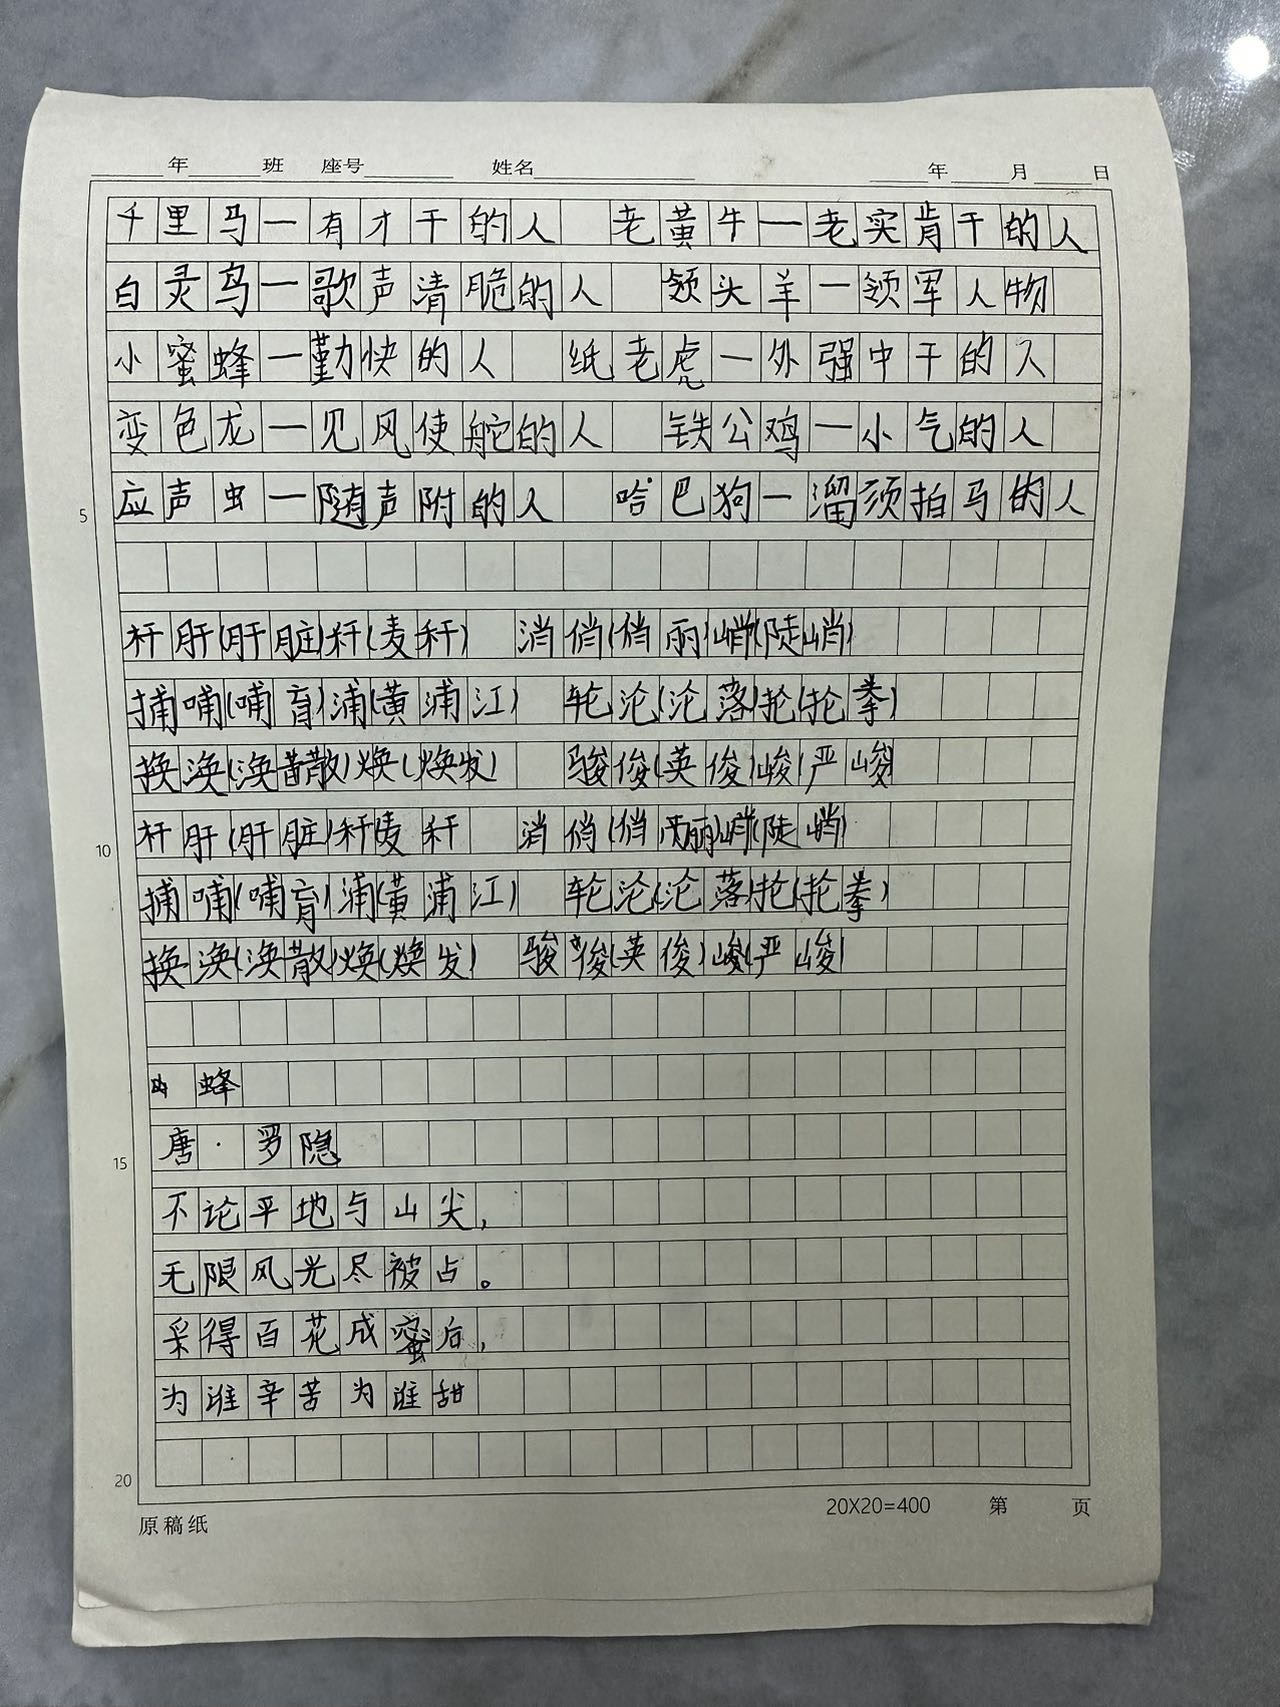 年 班 座号 姓名 年 月 日
千里马一有才干的人 老黄牛一老实肯干的人
白灵鸟一歌声清脆的人 领头羊一领军人物
小蜜蜂一勤快的人 纸老虎一外强中干的人
变色龙一见风使舵的人 铁公鸡一小气的人
5 应声虫一随声附的人 哈巴狗一溜须拍马的人
杆肝(肝脏)秆(麦秆) 消俏(俏丽)峭(陡峭)
捕哺(哺育)浦(黄浦江) 轮沦(沦落)抡(抡拳)
换涣(涣散)焕(焕发) 骏俊(英俊)峻(严峻)
10 杆肝(肝脏)秆麦秆 消俏(俏丽)峭(陡峭)
捕哺(哺育)浦(黄浦江) 轮沦(沦落)抡(抡拳)
换涣(涣散)焕(焕发) 骏俊(英俊)峻(严峻)
蜂
15 唐·罗隐
不论平地与山尖,
无限风光尽被占。
采得百花成蜜后,
为谁辛苦为谁甜
20
原稿纸 20X20=400 第 页